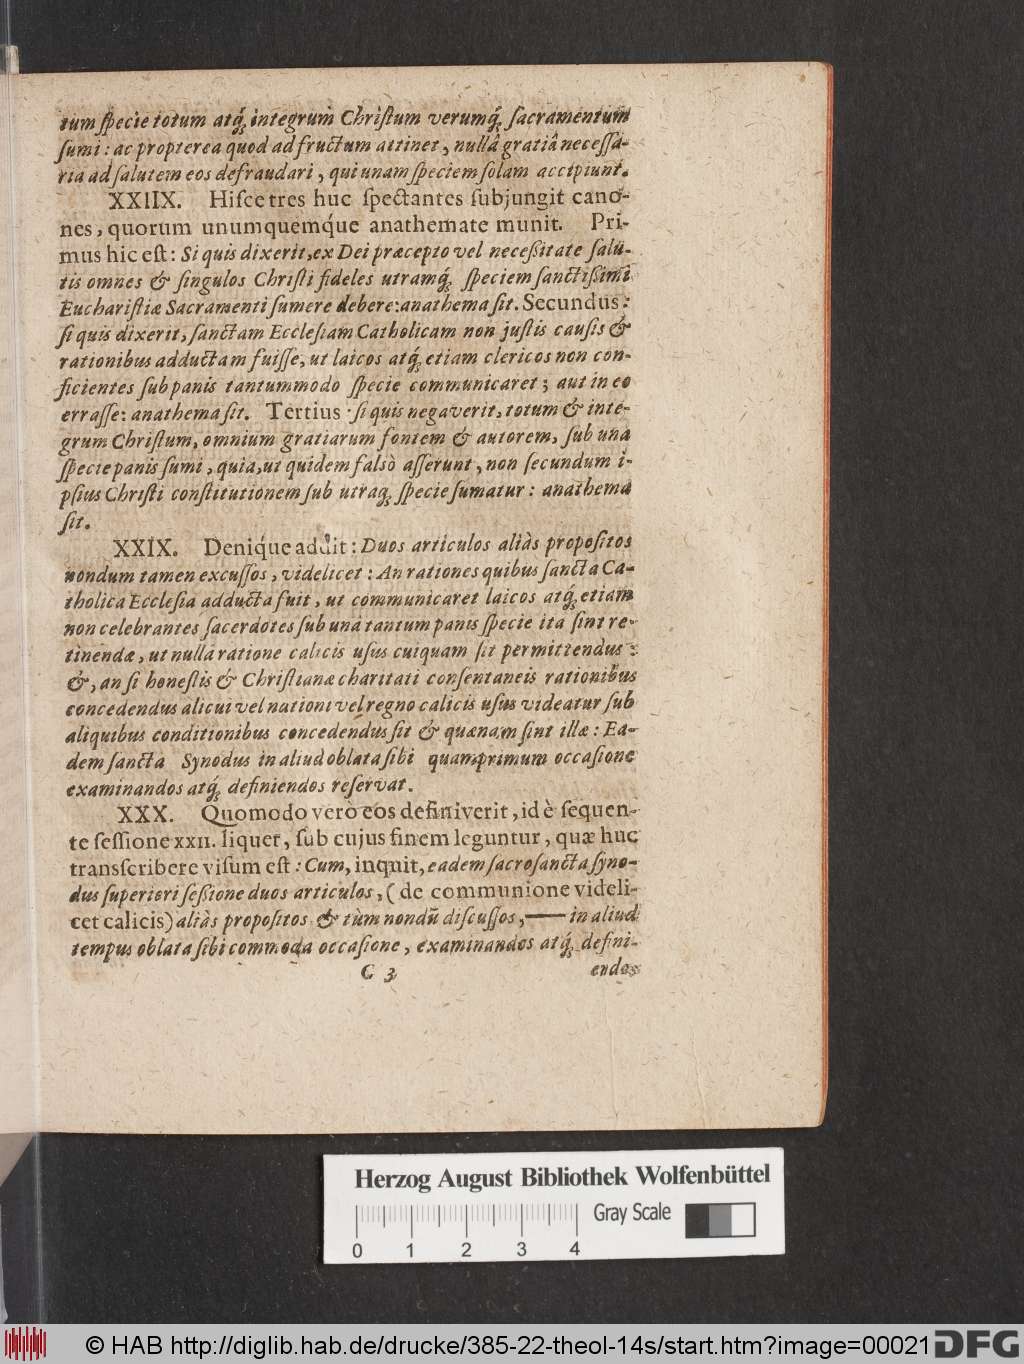 tum ſpecie totum atq́; integrum Chriſtum verumq́; ſacramentum
ſumi: ac propterea quod ad fructum attinet, nullâ gratiâ neceſſa-
ria ad ſalutem eos defraudari, qui unam ſpeciem ſolam accipiunt.
XXIIX. Hiſce tres huc ſpectantes ſubjungit cano-
nes, quorum unumquemq́ue anathemate munit. Pri-
mus hic eſt: Si quis dixerit, ex Dei præcepto vel neceßitate ſalu-
tis omnes & ſingulos Chriſti fideles utramq́; ſpeciem ſanctißimi
Euchariſtiæ Sacramenti ſumere debere: anathema ſit. Secundus:
ſi quis dixerit, ſanctam Eccleſiam Catholicam non juſtis cauſis &
rationibus adductam fuiſſe, ut laicos atq́; etiam clericos non con-
ficientes ſub panis tantummodo ſpecie communicaret; aut in eo
erraſſe: anathema ſit. Tertius ſi quis negaverit, totum & inte-
grum Chriſtum, omnium gratiarum fontem & autorem, ſub una
ſpecie panis ſumi, quia, ut quidem falsò aſſerunt, non ſecundum i-
pſius Chriſti conſtitutionem ſub utraq; ſpecie ſumatur: anathema
ſit.
XXIX. Deniq́ue addit: Duos articulos aliàs propoſitos
nondum tamen excuſſos, videlicet: An rationes quibus ſancta Ca-
tholica Eccleſia adducta fuit, ut communicaret laicos atq́; etiam
non celebrantes ſacerdotes ſub una tantum panis ſpecie ita ſint re-
tinendæ, ut nulla ratione calicis uſus cuiquam ſit permittendus:
&, an ſi honeſtis & Chriſtianæ charitati conſentaneis rationibus
concedendus alicui vel nationi vel regno calicis uſus videatur ſub
aliquibus conditionibus concedendus ſit & quænam ſint illæ: Ea-
dem ſancta Synodus in aliud oblata ſibi quamprimum occaſione
examinandos atq́; definiendos reſervat.
XXX. Quomodo verò eos definiverit, id è ſequen-
te ſeſſione XXII. liquet, ſub cujus finem leguntur, quæ huc
transſcribere viſum eſt: Cum, inquit, eadem ſacroſancta ſyno-
dus ſuperiori ſeßione duos articulos, (de communione videli-
cet calicis) aliàs propoſitos & tùm nondū diſcuſſos, — in aliud
tempus oblata ſibi commoda occaſione, examinandos atq́; defini-
C 3 endos
Herzog August Bibliothek Wolfenbüttel
Gray Scale
0 1 2 3 4
© HAB http://diglib.hab.de/drucke/385-22-theol-14s/start.htm?image=00021 DFG